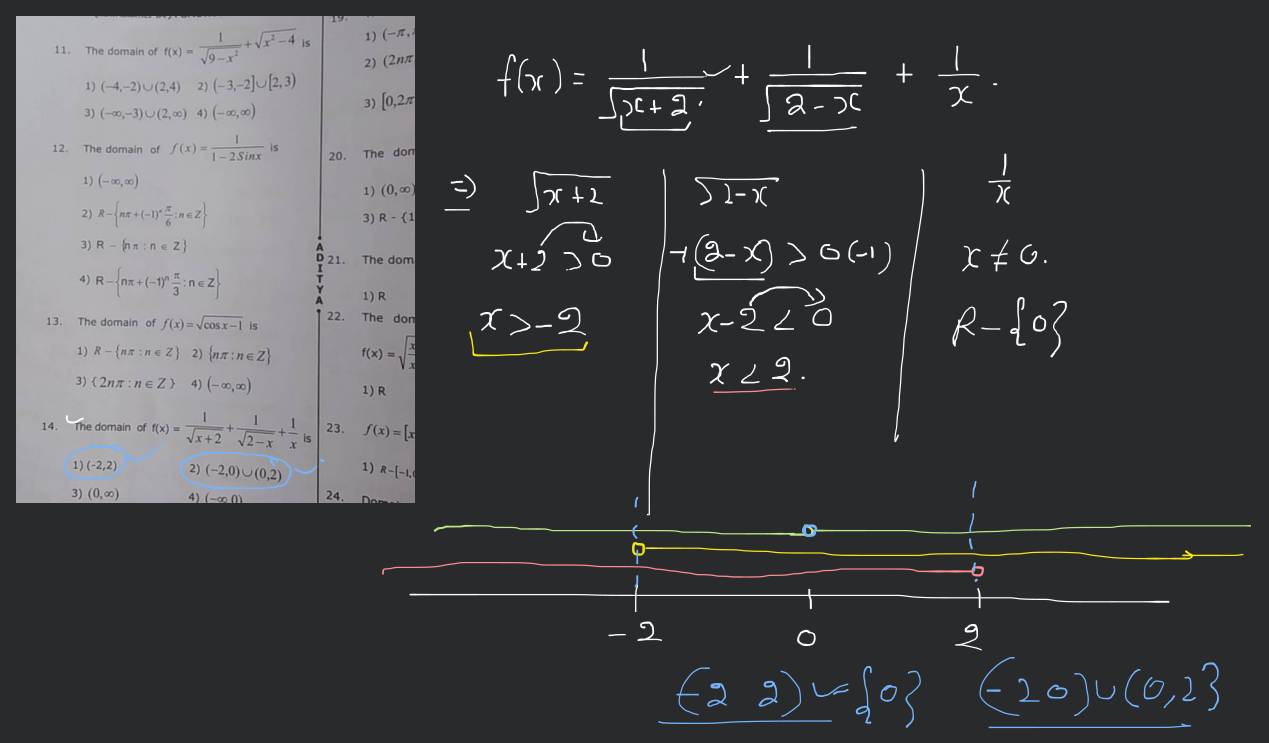 11. The domain of f(x) = 1/√(9−x²) + √(x²−4) is
1) (−4,−2)∪(2,4) 2) (−3,−2]∪[2,3)
3) (−∞,−3)∪(2,∞) 4) (−∞,∞)
12. The domain of f(x) = 1/(1−2Sinx) is
1) (−∞,∞)
2) R−{nπ+(−1)ⁿ π/6 : n∈Z}
3) R − {nπ : n ∈ Z}
4) R−{nπ+(−1)ⁿ π/3 : n∈Z}
13. The domain of f(x)=√(cosx−1) is
1) R−{nπ : n∈Z} 2) {nπ : n∈Z}
3) {2nπ : n∈Z} 4) (−∞,∞)
14. The domain of f(x) = 1/√(x+2) + 1/√(2−x) + 1/x is
1) (-2,2) 2) (−2,0)∪(0,2)
3) (0,∞) 4) (−∞ 0)
ADITYA
19.
1) (−π,
2) (2nπ
3) [0,2π
20. The dom
1) (0,∞)
3) R − {1
21. The dom
1) R
22. The don
f(x) = √x/x
1) R
23. f(x)=[x
1) R−[−1,
24.
f(x) = 1/√(x+2) + 1/√(2−x) + 1/x .
⇒ √(x+2) √(2−x) 1/x
x+2 > 0 −(2−x) > 0(−1) x ≠ 0.
x > −2 x−2 < 0 R−{0}
x < 2.
−2 0 2
(−2 2) − {0} (−2 0)∪(0,2}